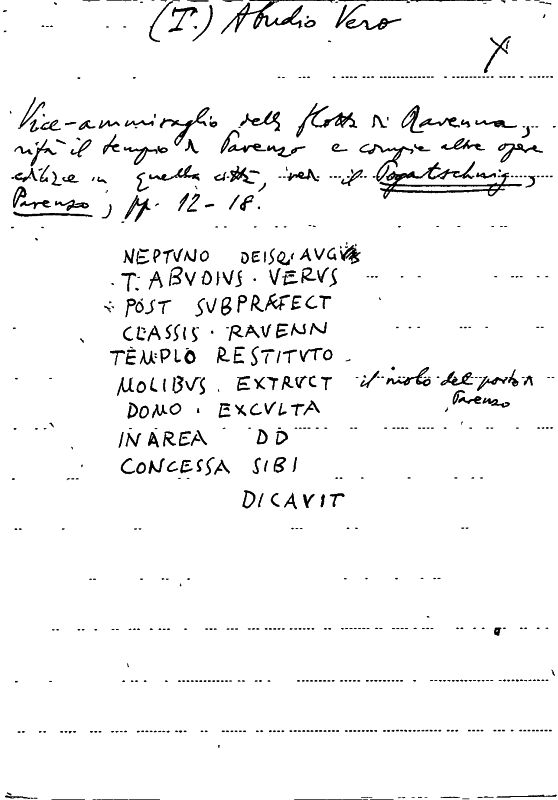 (T.) Abudio Vero
Vice-ammiraglio della flotta di Ravenna,
rifà il tempio di Parenzo e compie altre opere
edilizie in quella città, ved. il Pogatschnig,
Parenzo, pp. 12-18.
NEPTVNO DEISQ. AVG
T. ABVDIVS. VERVS
POST SVBPRAEFECT
CLASSIS. RAVENN
TEMPLO RESTITVTO
MOLIBVS. EXTRVCT il molo del porto di
Parenzo
DOMO. EXCVLTA
IN AREA DD
CONCESSA SIBI
DICAVIT